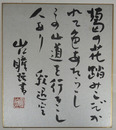 葛の花踏みしだか
れて色あたらし
この山道を行きし
人あり 釈迢空
山本健吉書